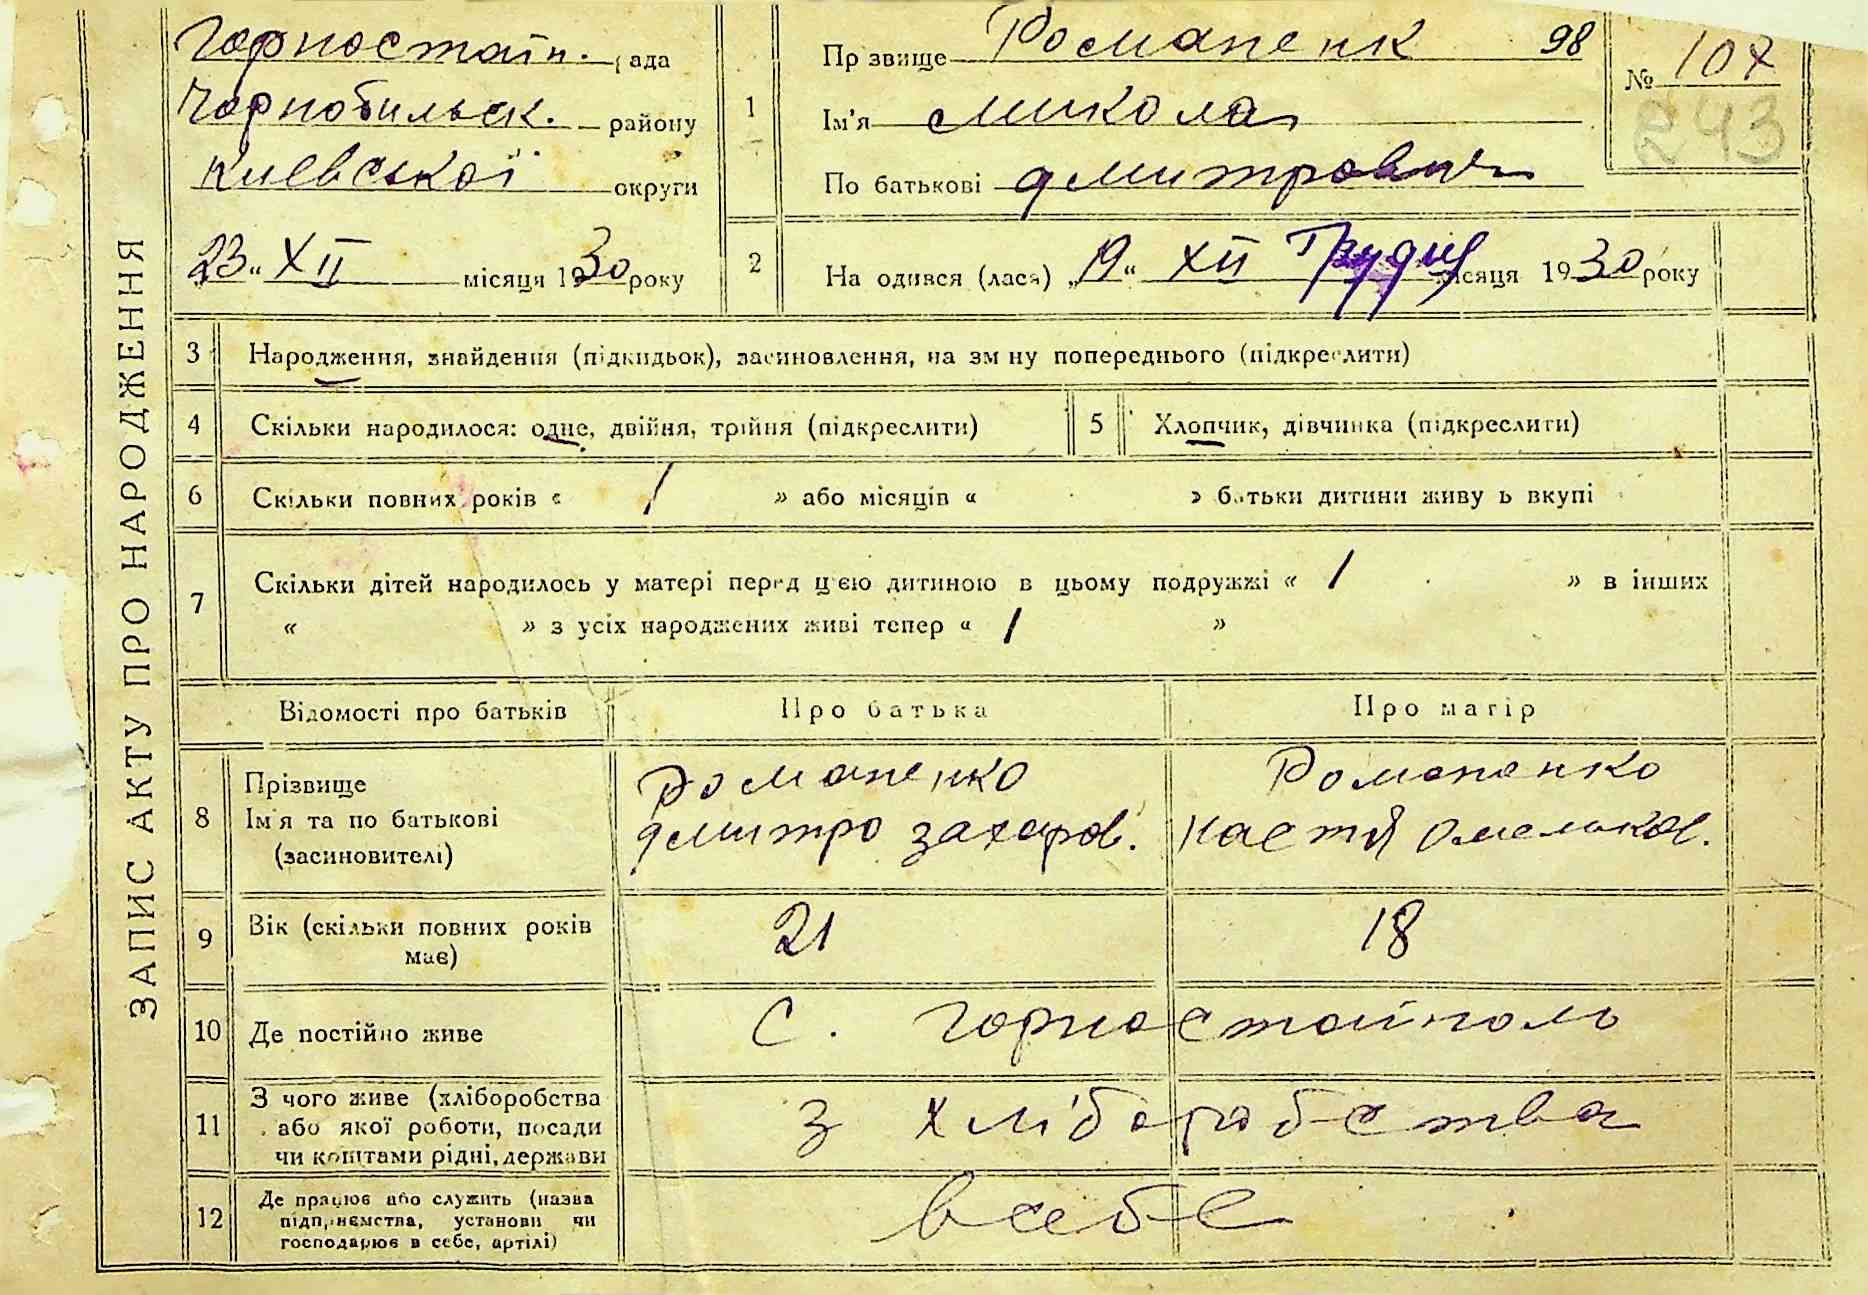 ЗАПИС АКТУ ПРО НАРОДЖЕННЯ
Горностайп. рада
Чорнобильск. району
Киевської округи
23 " XII місяця 1930 року
1
Пр звище Романенк 98
Ім'я Микола
По батькові Дмитрович
№ 107
243
2
На одився (лася) „ 19 " XII Грудня місяця 1930 року
3 Народження, знайдення (підкидьок), засиновлення, на зм ну попереднього (підкреслити)
4 Скільки народилося: одне, двійня, трійня (підкреслити)
5 Хлопчик, дівчинка (підкреслити)
6 Скільки повних років « 1 » або місяців « » батьки дитини живу ь вкупі
7 Скільки дітей народилось у матері перед цією дитиною в цьому подружжі « 1 » в інших
« » з усіх народжених живі тепер « 1 »
Відомості про батьків Про батька Про матір
8 Прізвище
Ім'я та по батькові
(засиновителі)
Романенко
Дмитро Захаров.
Романенко
Настя Омельков.
9 Вік (скільки повних років
має)
21 18
10 Де постійно живе
с. Горностайполь
11 З чого живе (хліборобства
або якої роботи, посади
чи коштами рідні, держави
З хліборобства
12 Де працює або служить (назва
підприємства, установи чи
господарює в себе, артілі)
в себе